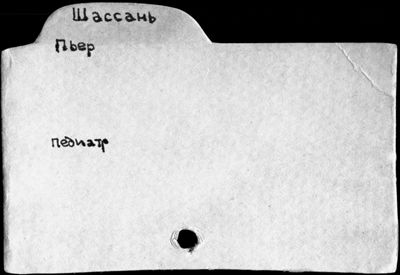 Шассань
Пьер
педиатр